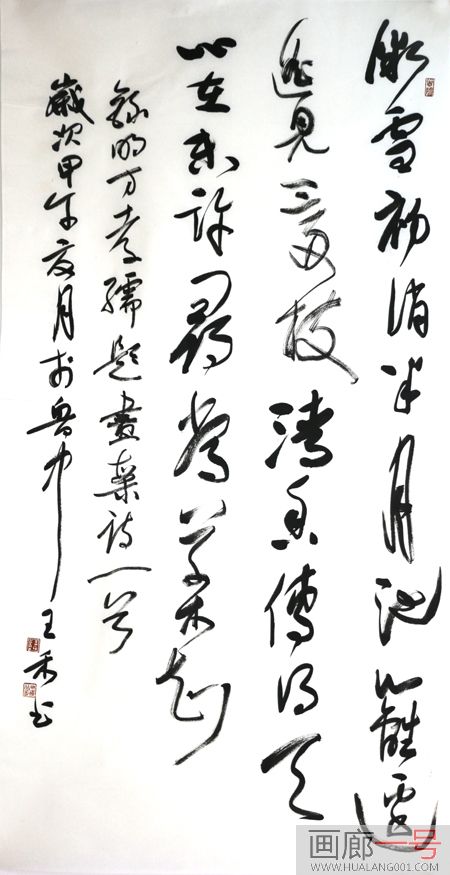 微雪初消半月池籬邊
遥見三两枝清香傳得天
心在未許尋常草木知
錄明方孝孺題畫詩一首
歲次甲午夏月於魯中王禾书
画廊一号
WWW.HUALANG001.COM